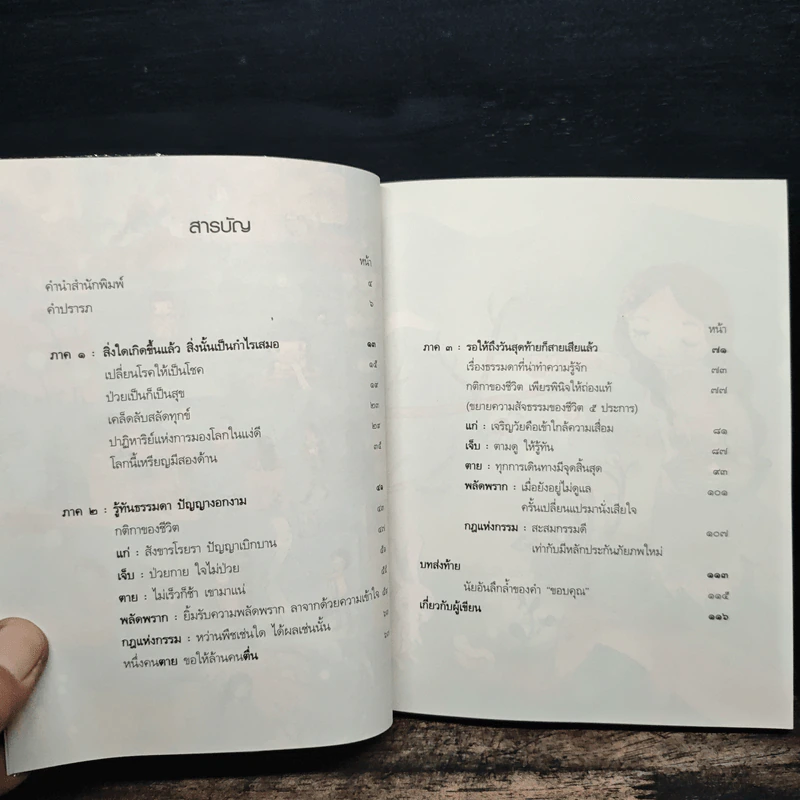 สารบัญ
หน้า
คำนำสำนักพิมพ์ ๔
คำปรารภ ๖
ภาค ๑ : สิ่งใดเกิดขึ้นแล้ว สิ่งนั้นเป็นกำไรเสมอ ๑๓
เปลี่ยนโรคให้เป็นโชค ๑๕
ป่วยเป็นก็เป็นสุข ๑๙
เคล็ดลับสลัดทุกข์ ๒๓
ปาฏิหาริย์แห่งการมองโลกในแง่ดี ๒๙
โลกนี้เหรียญมีสองด้าน ๓๕
ภาค ๒ : รู้ทันธรรมดา ปัญญางอกงาม ๔๑
กติกาของชีวิต ๔๓
แก่ : สังขารโรยรา ปัญญาเบิกบาน ๔๗
เจ็บ : ป่วยกาย ใจไม่ป่วย
ตาย : ไม่เร็วก็ช้า เขามาแน่
พลัดพราก : ยิ้มรับความพลัดพราก ลาจากด้วยความเข้าใจ
กฎแห่งกรรม : หว่านพืชเช่นใด ได้ผลเช่นนั้น
หนึ่งคนตาย ขอให้ล้านคนตื่น
หน้า
ภาค ๓ : รอให้ถึงวันสุดท้ายก็สายเสียแล้ว ๗๑
เรื่องธรรมดาที่น่าทำความรู้จัก ๗๓
กติกาของชีวิต เพียรพินิจให้ถ่องแท้ ๗๗
(ขยายความสัจธรรมของชีวิต ๕ ประการ)
แก่ : เจริญวัยคือเข้าใกล้ความเสื่อม ๘๑
เจ็บ : ตามดู ให้รู้ทัน ๘๗
ตาย : ทุกการเดินทางมีจุดสิ้นสุด ๙๓
พลัดพราก : เมื่อยังอยู่ไม่ดูแล ๑๐๑
ครั้นเปลี่ยนแปรมานั่งเสียใจ
กฎแห่งกรรม : สะสมกรรมดี ๑๐๗
เท่ากับมีหลักประกันภัยภพใหม่
บทส่งท้าย ๑๑๓
นัยอันลึกล้ำของคำ "ขอบคุณ" ๑๑๕
เกี่ยวกับผู้เขียน ๑๑๖